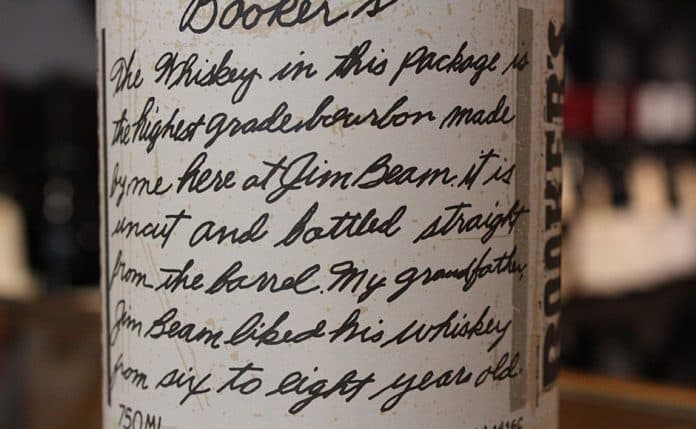 Booker's
The Whiskey in this package is
the highest grade bourbon made
by me here at Jim Beam. it is
uncut and bottled straight
from the barrel. My grandfather,
Jim Beam liked his whiskey
from six to eight years old.
750ML
BOOKER'S